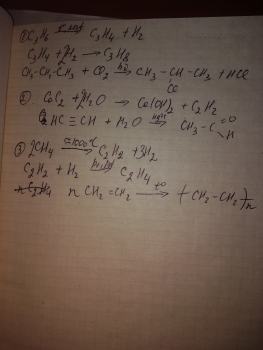 ① C₃H₆ → C₃H₄ + H₂
C₃H₄ + 2H₂ → C₃H₈
CH₃-CH₂-CH₃ + Cl₂ →hν CH₃ - CH - CH₃ + HCl
Cl
② CaC₂ + 2H₂O → Ca(OH)₂ + C₂H₂
HC ≡ CH + H₂O →Hg²⁺ CH₃ - C =O H
③ 2CH₄ →t=1000°C C₂H₂ + 3H₂
C₂H₂ + H₂ → C₂H₄
n CH₂ = CH₂ →t° (-CH₂ - CH₂-)n